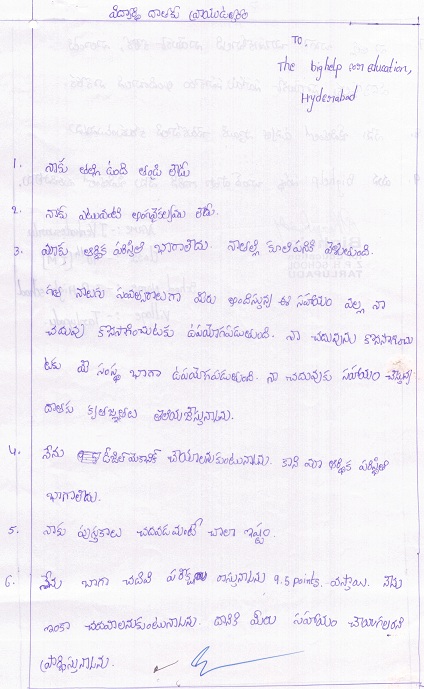 విద్యార్థి దాతకు వ్రాయు ఉత్తరం
TO,
The bighelp for education,
Hyderabad
1. నాకు తల్లి ఉంది తండ్రి లేడు
2. నాకు ఎటువంటి అంగవైకల్యము లేదు.
3. మాకు ఆర్థిక పరిస్థితి బాగాలేదు. నాతల్లి కూలిపనికి వెళ్తుంది.
గత నాలుగు సంవత్సరాలుగా మీరు అందిస్తున్న ఈ సహాయం వల్ల నా
చదువు కొనసాగించుటకు ఉపయోగపడుతుంది. నా చదువును కొనసాగించు
టకు మీ సంస్థ బాగా ఉపయోగపడుతుంది. నా చదువుకు సహాయం చేస్తున్న
దాతకు కృతజ్ఞతలు తెలియజేస్తున్నాను.
4. నేను డీజిల్ మెకానిక్ చేయాలనుకుంటున్నాను. కాని మా ఆర్థిక పరిస్థితి
బాగాలేదు.
5. నాకు పుస్తకాలు చదవడమంటే చాలా ఇష్టం.
6. నేను బాగా చదివి పరీక్షలు రాస్తున్నాను 9.5 points. వస్తాయి. నేను
ఇంకా చదవాలనుకుంటున్నాను. దానికి మీరు సహాయం చేయగలరని
ప్రార్థిస్తున్నాను.